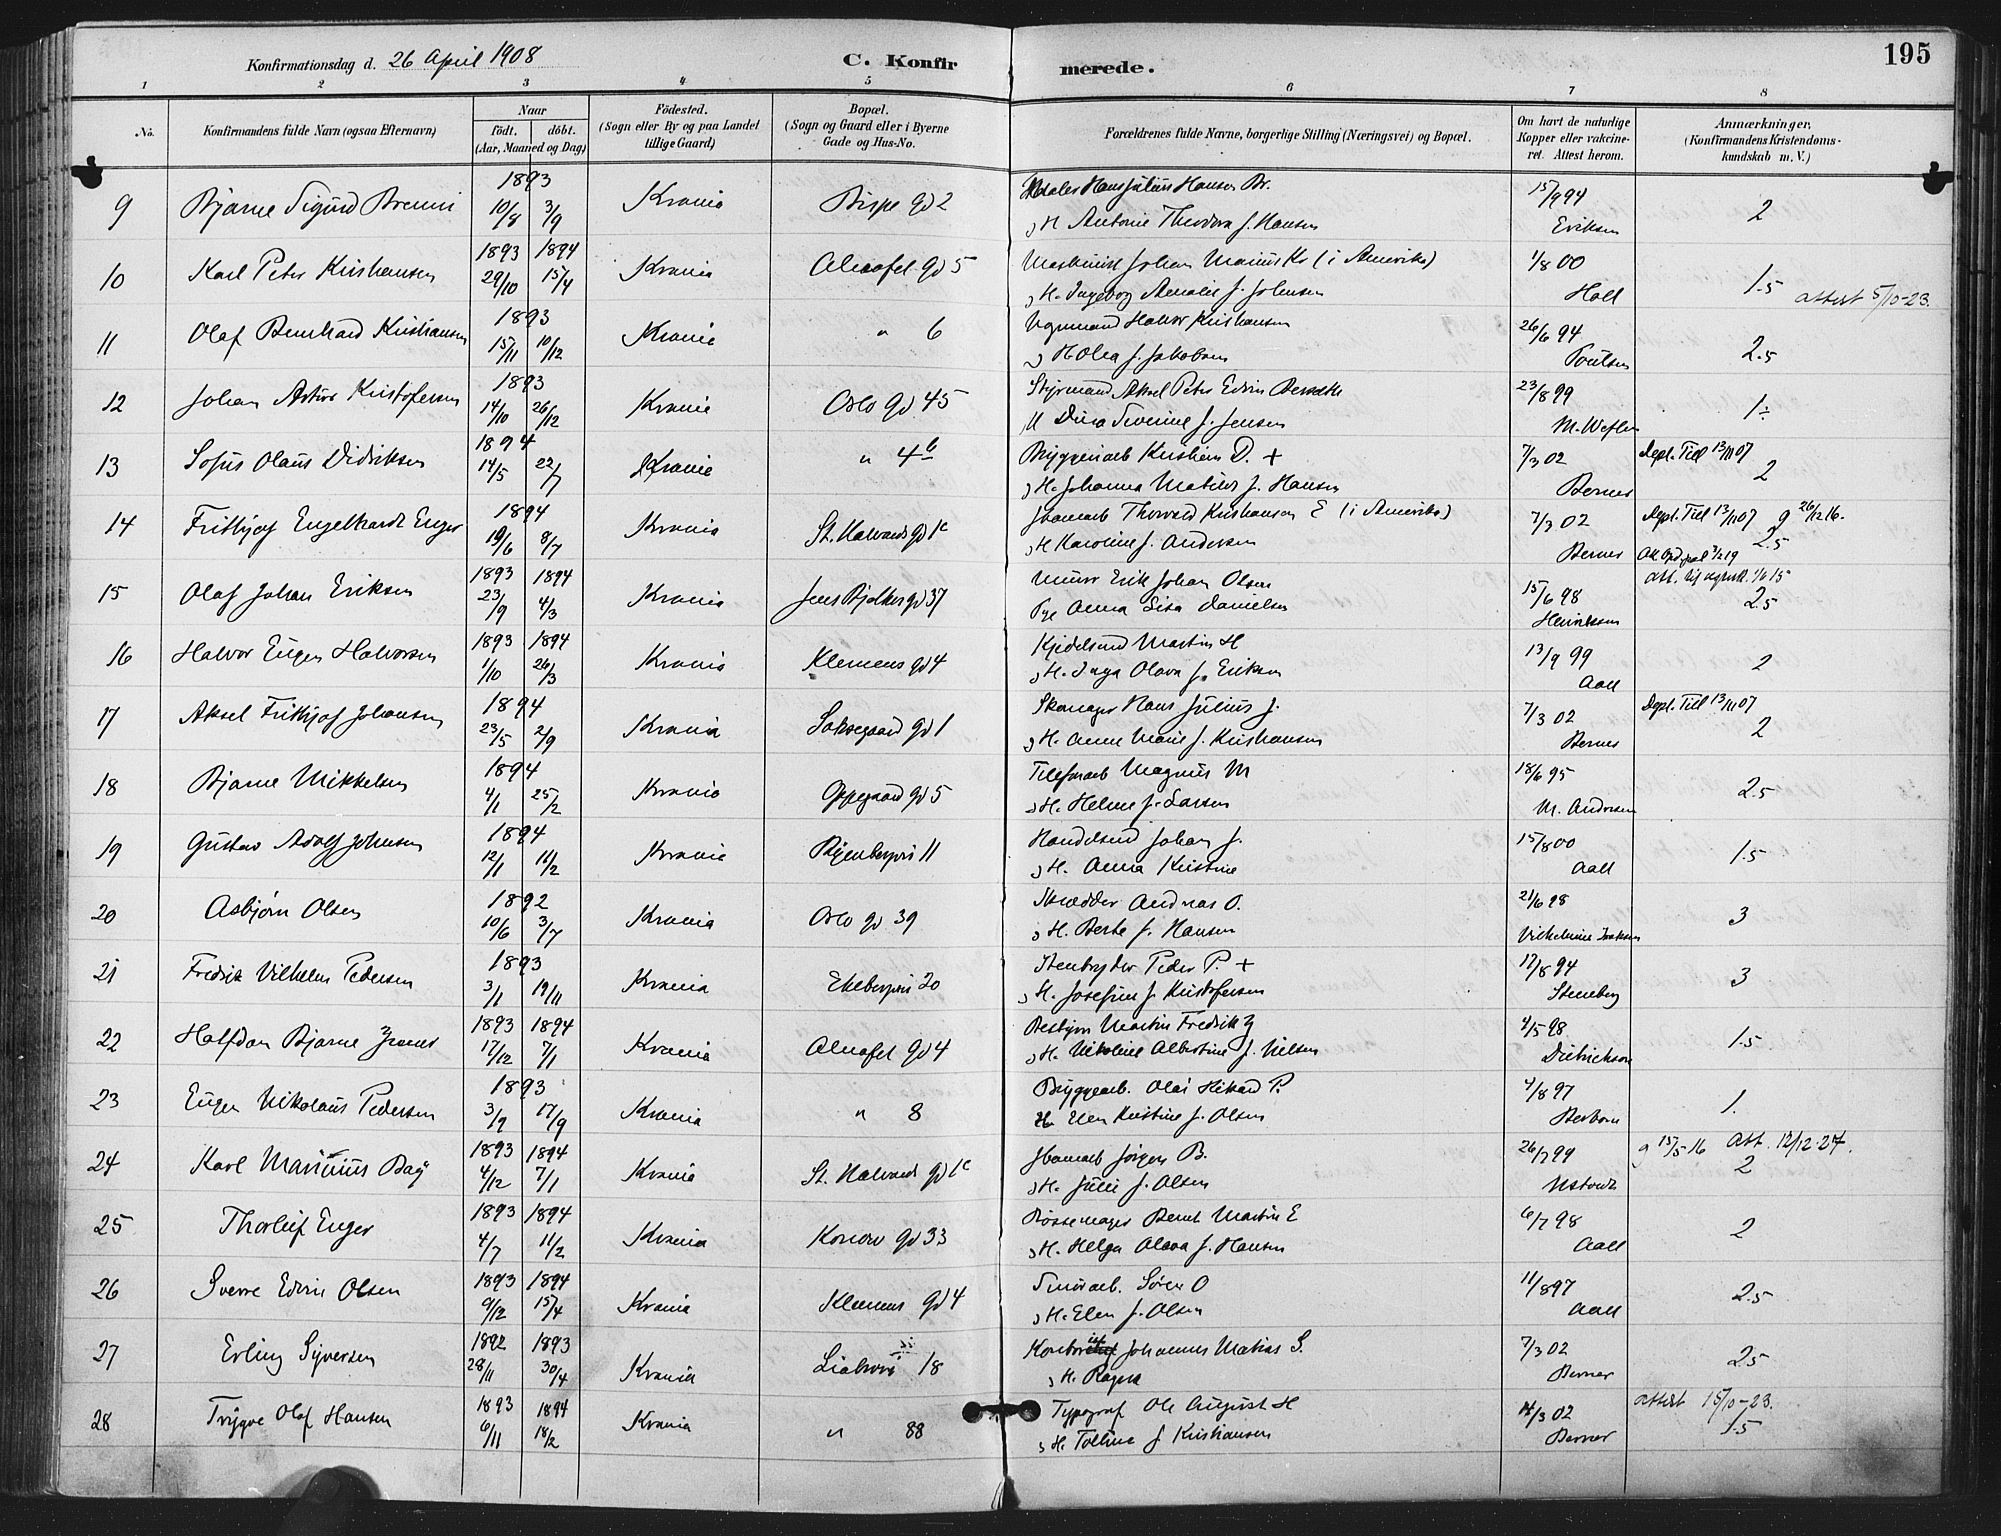 Konfirmationsdag d. 26 April 1908 C. Konfirmerede. 195
1 2 3 4 5 6 7 8
No. Konfirmandens fulde Navn (ogsaa Efternavn) Naar født. døbt. (Aar, Maaned og Dag) Fødested. (Sogn eller By og paa Landet tillige Gaard) Bopæl. (Sogn og Gaard eller i Byerne Gade og Hus-No. Forældrenes fulde Navne, borgerlige Stilling (Næringsvei) og Bopæl. Om havt de naturlige Kopper eller vakcineret. Attest herom. Anmærkninger, (Konfirmandens Kristendomskundskab m. V.)
9 Bjarne Sigurd 1893 10/8 3/9 Krania Bispe gd 2 Hans Julius Hansen Br. 15/9 94
H Antonie Theodora f. Hansen Eriksen 2
10 Karl Peter Kristiansen 1893 29/10 1894 15/4 Krania Alnafet gd 5 Maskinist Johan Marius Kr (i Amerika) 1/8 00
H. Ingeborg Amalie f. Johnsen Holl 1.5 attest 5/10-23.
11 Olaf Bernhard Kristiansen 1893 15/11 10/12 Krania " 6 Vognmand Halvor Kristiansen 26/6 94
H Olea f. Jakobsen Poulsen 2.5
12 Johan Artur Kristofersen 1893 14/10 26/12 Krania Oslo gd 45 Styrmand Aksel Peter Edvin 23/8 99
H Dina Severine f. Jensen 1
13 Sofus Olaus Didriksen 1894 14/5 22/7 Krania " 4b Bryggeriarb Kristian D. + 7/3 02 Dept. Till 13/11 07
H. Johanna Matilde f. Hansen Berner 2
14 Frithjof Engelhardt Enger 1894 19/6 8/7 Krania St. Halvards gd 1c Thorvald Kristiansen E (i Amerika) 7/3 02 Dept. Till 13/11 07 g 26/12 16.
H Karoline f. Andersen Berner 2.5
15 Olaf Johan Eriksen 1893 23/9 1894 4/3 Krania Jens Bjelkes gd 37 Murer Erik Johan Olsen 15/6 98
Pge Anna Lisa Danielsen Henriksen 2.5
16 Halvor Eugen Halvorsen 1893 1/10 1894 26/3 Krania Klemens gd 4 Kjedelsmed Martin H 13/9 99
H. Inga Olava f. Eriksen Aall 2
17 Aksel Frithjof Johansen 1894 23/5 2/9 Krania Saksegaard gd 1 Skomager Hans Julius J. 7/3 02 Dept. Till 13/11 07
H. Anne Marie f. Kristiansen Berner 2
18 Bjarne Mikkelsen 1894 4/1 25/2 Krania Oppegaard gd 5 Telefonarb Magnus M 18/6 95
H. Helene f. Larsen M. Andersen 2.5
19 Gustav Adolf Johnsen 1894 12/1 11/2 Krania Ryenbergvei 11 Handelsmd Johan J. 15/8 00
H. Anna Kristine Aall 1.5
20 Asbjørn Olsen 1892 10/6 3/7 Krania Oslo gd 39 Skrædder Andreas O. 21/6 98
H. Berte f. Hansen Vilhelmine Isaksen 3
21 Fredrik Vilhelm Pedersen 1893 3/1 19/11 Krania Ekebergvei 20 Stenbryder Peder P. + 17/8 94
H. Josefine f. Kristofersen Steneberg 3
22 Halfdan Bjarne 1893 17/12 1894 7/1 Krania Alnafet gd 4 Martin Fredrik 4/5 98
H. Nikoline Albertine f. Nilsen Dietrichson 1.5
23 Eugen Nikolaus Pedersen 1893 3/9 17/9 Krania " 8 Bryggearb. Olai Rikard P. 4/8 97
H. Elen Kristine f. Olsen 1.
24 Karl Marinius Bay 1893 4/12 1894 7/1 Krania St. Halvards gd 1c Jørgen B. 26/7 99 g 15/5-16 Att. 12/12-24.
H. Julie f. Olsen Ustvedt 2
25 Thorleif Enger 1893 4/7 1894 11/2 Krania Konow gd 33 Børstemager Bernt Martin E 6/7 98
H. Helga Olava f. Hansen Aall 2
26 Sverre Edvin Olsen 1893 9/12 1894 15/4 Krania Klemens gd 4 Søren O 11/8 97
H. Elen f. Olsen Aall 2.5
27 Erling Syversen 1892 28/11 1893 30/4 Krania Liabrovei 18 Kontorist Johannes Matias S. 7/3 02
H. Ragna Berner 2.5
28 Trygve Olaf Hansen 1893 6/11 1894 18/2 Krania " 88 Typograf Ole August H 14/3 02 attest 15/10-23.
H. Tolline f Kristiansen Berner 1.5